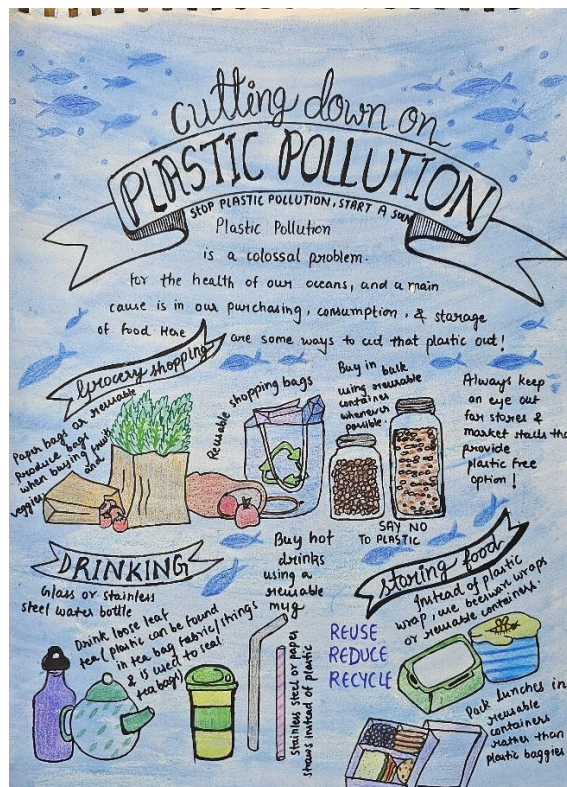 cutting down on
PLASTIC POLLUTION
STOP PLASTIC POLLUTION, START A
Plastic Pollution
is a colossal problem.
for the health of our oceans, and a main
cause is in our purchasing, consumption, & starage
of food Here are some ways to cut that plastic out!
Grocery shopping
Paper bags as reusable
produce bags
when buying fruits
and
veggies
Reusable shopping bags
Buy in bulk
using reusable
container
whenever
possible.
Always keep
an eye out
for stores &
market stalls tha
provide
plastic free
option!
SAY NO
TO PLASTIC
DRINKING
Glass or stainless
steel water bottle
Drink loose leaf
tea (plastic can be found
in tea bag fabric/strings
& is used to seal
teabags)
Buy hot
drinks
using a
reusable
mug
Stainless steel or paper
straws instead of plastic
storing food
Instead of plastic
wrap, use beeswax wraps
or reusable containers.
REUSE
REDUCE
RECYCLE
Pack lunches in
reusable
containers
rather than
plastic baggies